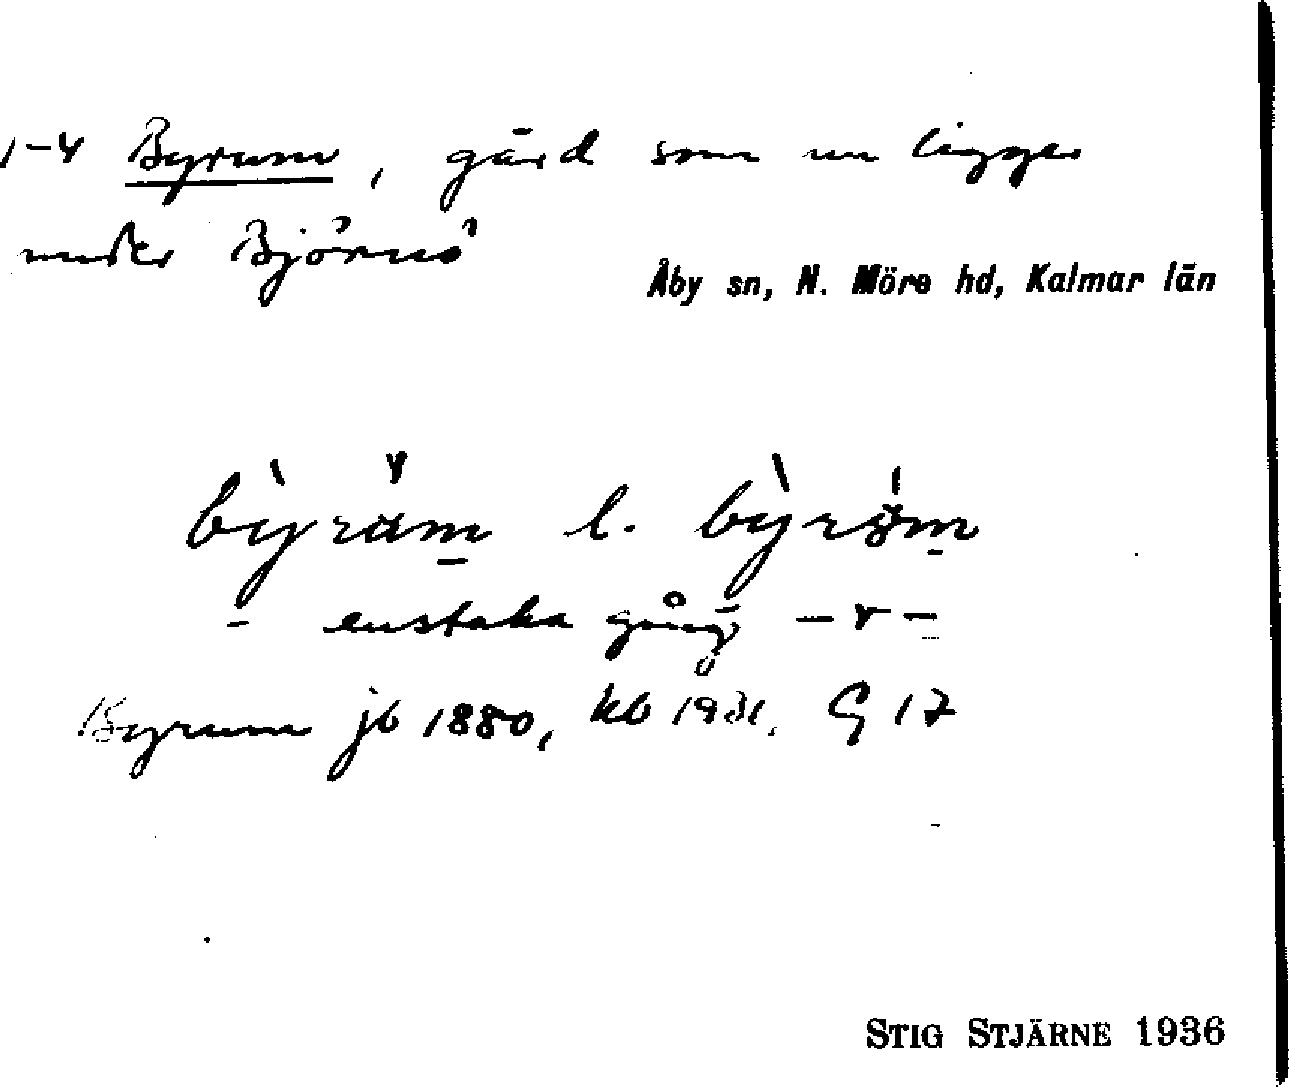 1-4 Byrum, gård som nu ligger
under Björnö
Åby sn, N. Möre hd, Kalmar län
bỳräm l. bỳröm
- enstaka gång -r-
Byrum jb 1880, kb 1931, G 17
STIG STJÄRNE 1936